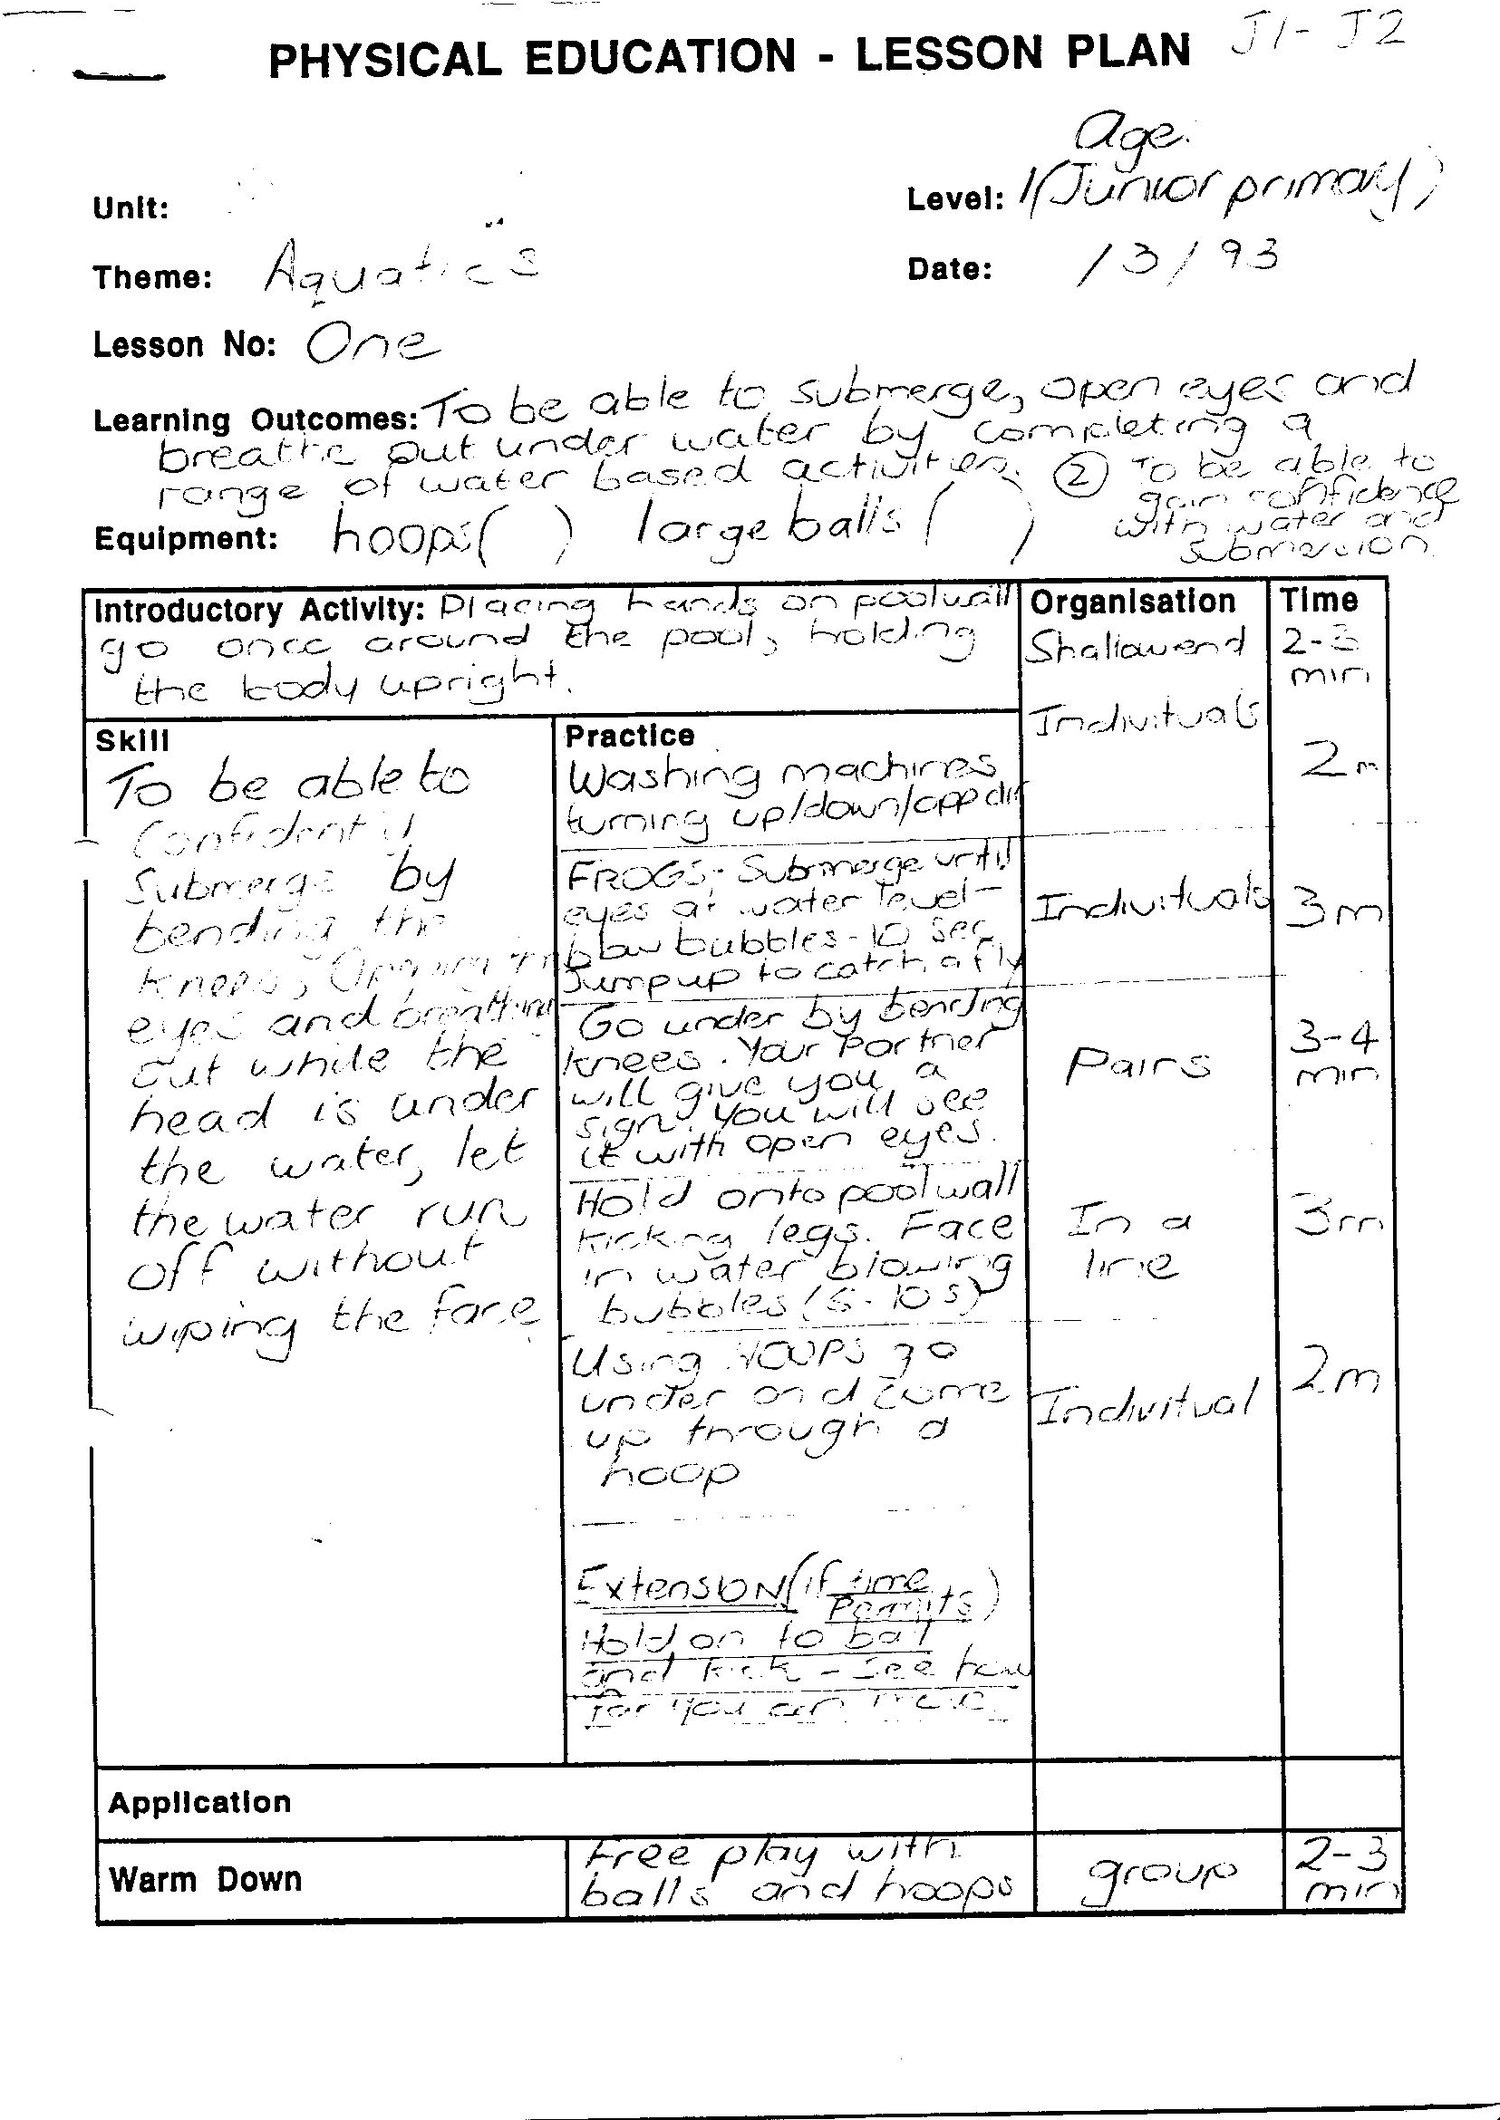 J1- J2
PHYSICAL EDUCATION - LESSON PLAN
Age.
Unit:
Level: 1(Junior primary)
Theme: Aquatics
Date: /3/93
Lesson No: One
Learning Outcomes: To be able to submerge, open eyes and
breathe out under water by completing a
range of water based activities. ② To be able to
gain confidence
with water and
submersion.
Equipment: hoops( ) large balls ( )
Introductory Activity: Placing hands on poolwall
go once around the pool, holding
the body upright.
Organisation
Shallowend
Individuals
Time
2-3
min
Skill
To be able to
confidently
submerge by
bending the
knees, Opening the
eyes and breathing
out while the
head is under
the water, let
the water run
off without
wiping the face
Practice
Washing machines
turning up/down/opp dir
2m
FROGS- Submerge until
eyes at water level-
blow bubbles - 10 sec
Jump up to catch a fly
Individuals
3m
Go under by bending
knees. Your Partner
will give you a
sign. You will see
it with open eyes.
Pairs
3-4
min
Hold onto poolwall
kicking legs. Face
in water blowing
bubbles (5-10s)
In a
line
3m
Using HOOPS go
under and come
up through a
hoop
Indivitual
2m
Extension (if time
Permits)
Hold on to ball
and kick - see how
far you can move.
Application
Warm Down
Free play with
balls and hoops
group
2-3
min